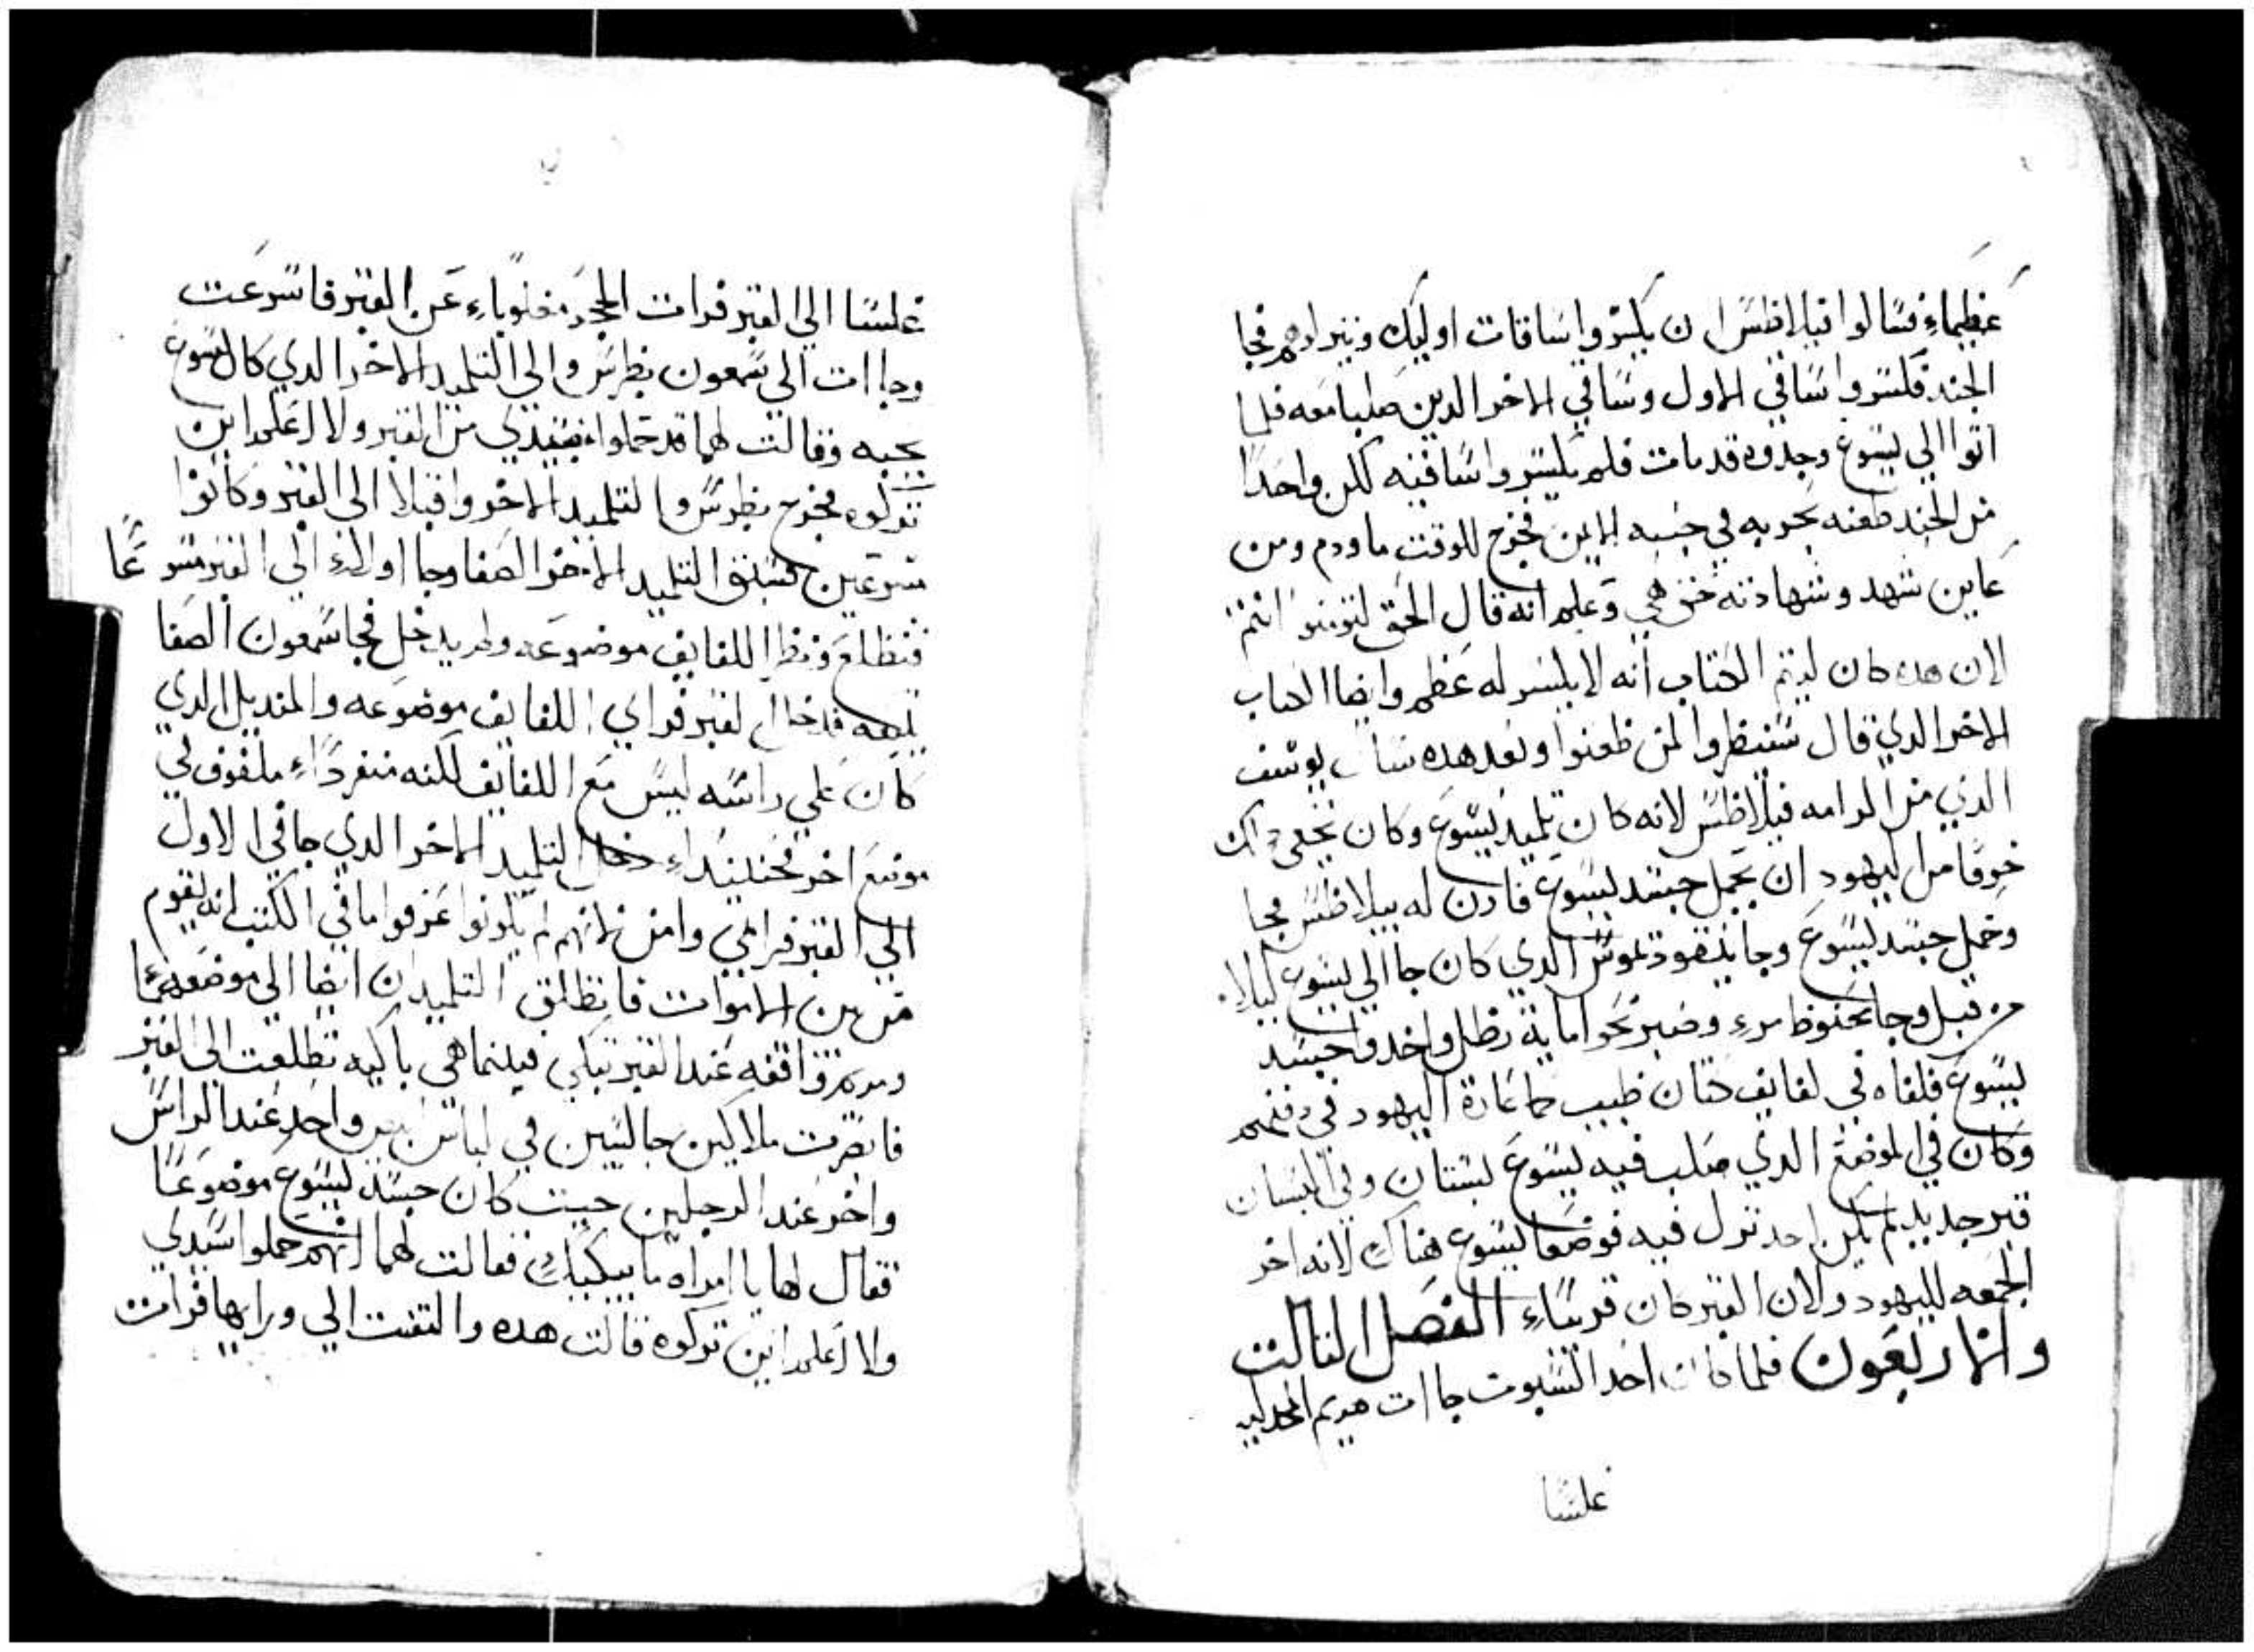 عظيماء فسالوا فيلاطس ان يكسروا ساقات اوليك وينزلوهم فجا
الجند فكسروا ساقي الاول وساقي الاخر الدين صلبا معه فلما
اتوا الي يسوع وجدوه قد مات فلم يكسروا ساقيه لكن واحدا
من الجند طعنه بحربه في جنبه الايمن فخرج للوقت ما ودم ومن
عاين شهد وشهادته حق هي وعلم انه قال الحق لتومنوا انتم
لان هده كان ليتم الكتاب انه لا يكسر له عظم وايضا الكتاب
الاخر الدي قال سينظروا لمن طعنوا وبعد هده سال يوسف
الدي من الرامه فيلاطس لانه كان تلميد ليسوع وكان يخفي داك
خوفا من اليهود ان يحمل جسد يسوع فادن له بيلاطس فجا
وحمل جسد يسوع وجا نيقودموس الدي كان جا الي يسوع ليلا
من قبل وجا بحنوط مرء وصبر نحوا مايه رطل واخدوا جسد
يسوع فلفاه في لفايف كتان طيب كما عادة اليهود في دفنهم
وكان في الموضع الدي صلب فيه يسوع بستان وفي البستان
قبر جديد لم يكن احد ترك فيه فوضعا يسوع هناك لانه اخر
الجمعه لليهود ولان القبر كان قريباء الفصل التالت
والاربعون فلما كان احد السبوت جاات مريم المجدليه
غلسا
غلسا الي القبر فرات الحجر مقلوباء عن القبر فاسرعت
وجاات الي سمعون بطرس والي التلميد الاخر الدي كان يسوع
يحبه وقالت لهما قد حملوا سيدي من القبر ولا اعلم اين
تركوه فخرج بطرس والتلميد الاخر واقبلا الي القبر وكانوا
مسرعين فسبق التلميد الاخر الصفا وجا اولاء الي القبر مسرعا
فتطلع ونظر اللفايف موضوعه ولم يدخل فجا سمعون الصفا
يتبعه فدخل القبر فراي اللفايف موضوعه والمنديل الدي
كان علي راسه ليس مع اللفايف لكنه منفرداء ملفوف في
موضع اخر فحينيداء دخل التلميد الاخر الدي جا في الاول
الي القبر فراي وامن لانهم لم يكونوا عرفوا ما في الكتب انه يقوم
من بين الاموات فانطلق التلميدان ايضا الي موضعهما
ومريم واقفه عند القبر تبكي فبينما هي باكيه تطلعت الي القبر
فابصرت ملاكين جالسين في لباس بيض واحد عند الراس
واخر عند الرجلين حيت كان جسد يسوع موضوعا
فقال لها يا امراه ما يبكيك فقالت لهما انهم حملوا سيدي
ولا اعلم اين تركوه قالت هده والتفتت الي ورايها فرات